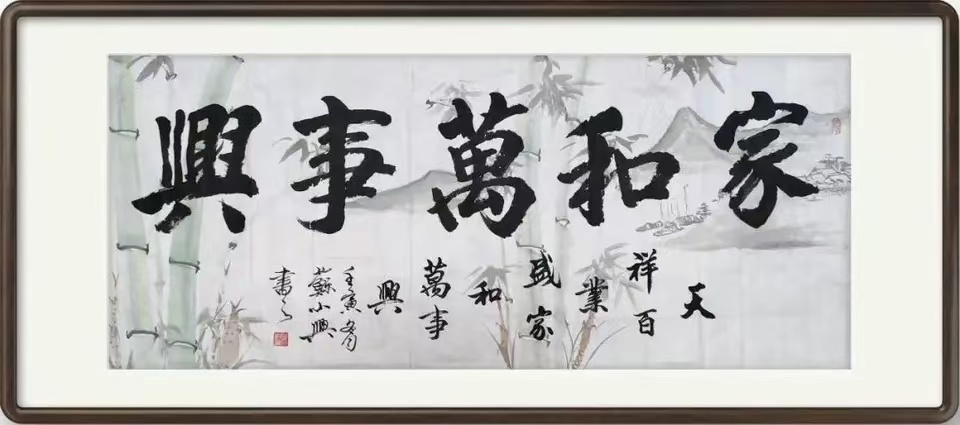 家和萬事興
天
祥百
業
盛家
和
萬事
興
壬寅冬月
蘇小興
書之